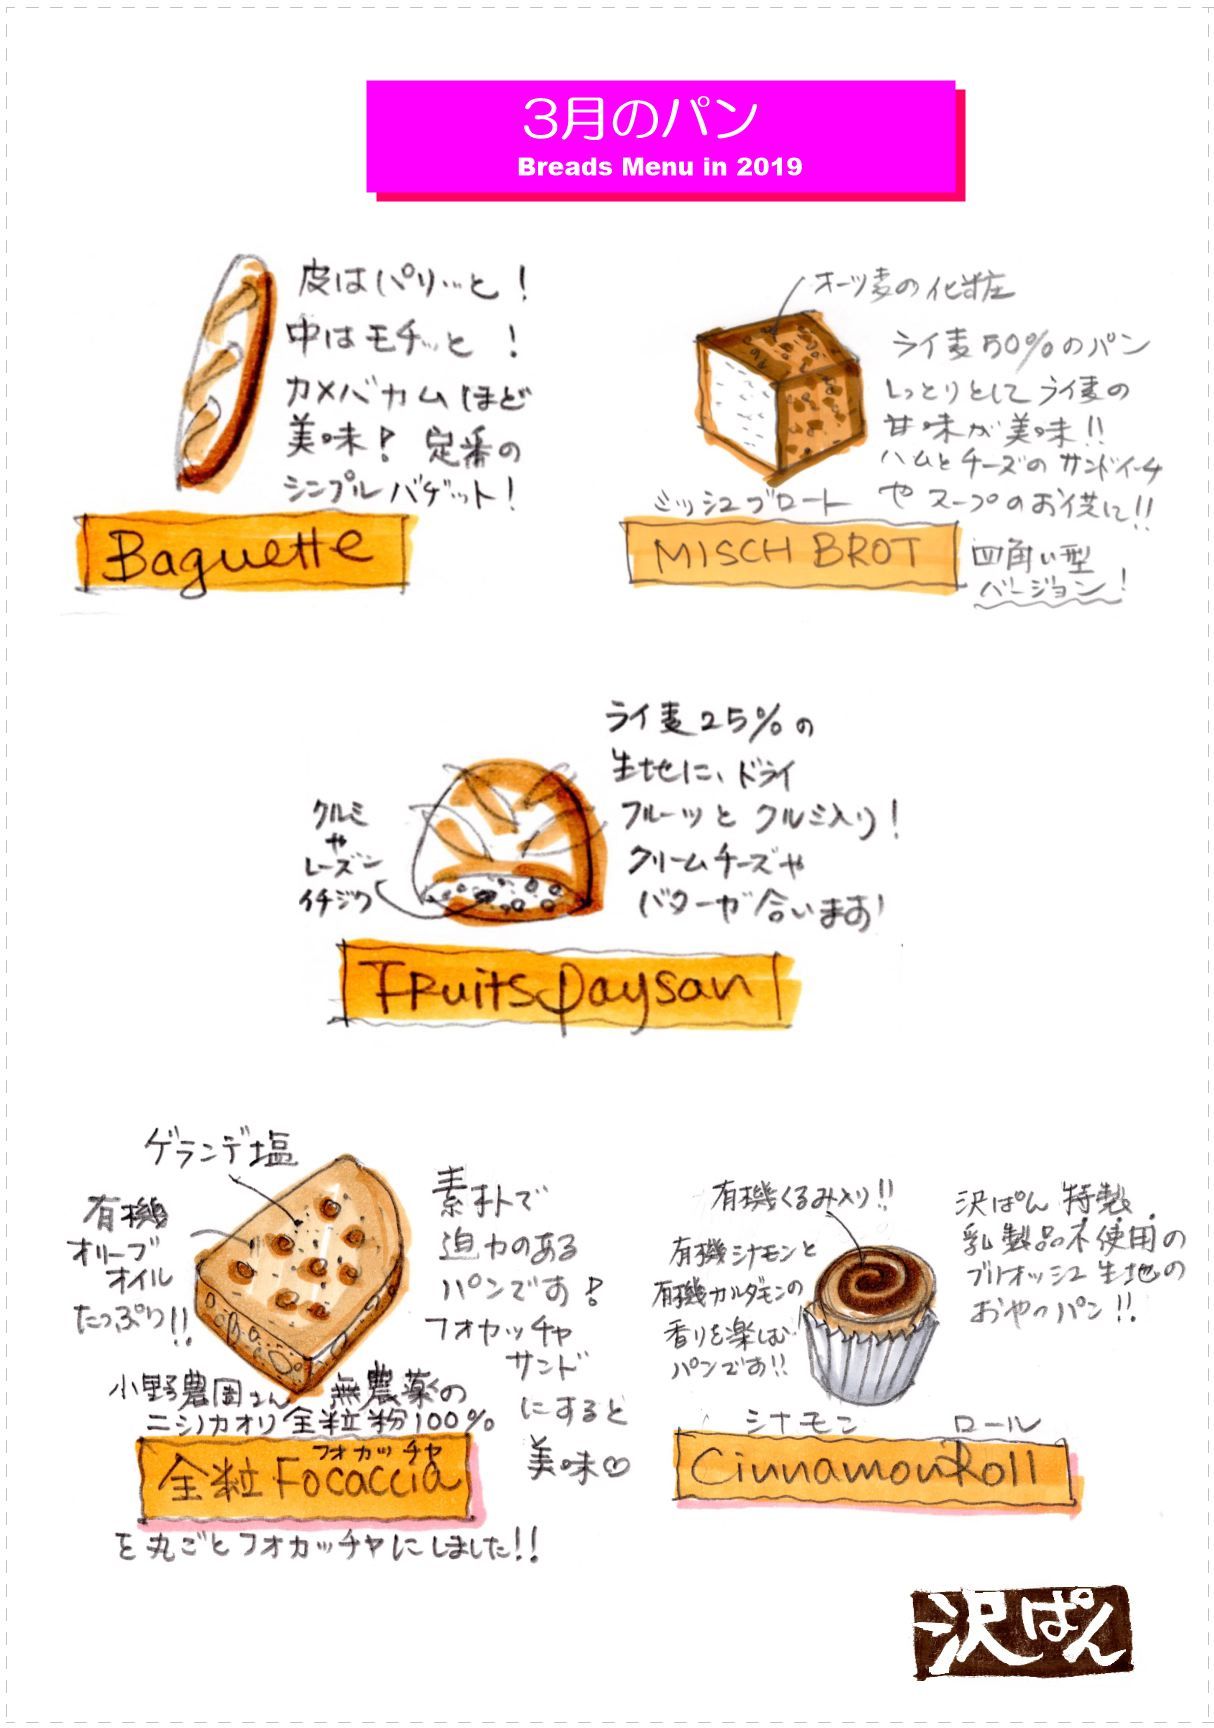 3月のパン
Breads Menu in 2019
皮はパリッと！
中はモチッと！
カメバカムほど
美味！定番の
シンプルバゲット！
Baguette
オーツ麦の化粧
ライ麦50%のパン
しっとりとしてライ麦の
甘味が美味!!
ハムとチーズのサンドイッチ
やスープのお供に!!
ミッシュブロート
MISCH BROT
四角い型
バージョン！
ライ麦25%の
生地に、ドライ
フルーツとクルミ入り！
クリームチーズや
バターが合います！
クルミ
や
レーズン
イチジク
Fruits paysan
ゲランデ塩
有機
オリーブ
オイル
たっぷり!!
素朴で
迫力のある
パンです！
フォカッチャ
サンド
にすると
美味♡
小野農園さん 無農薬の
ニシノカオリ全粒粉100%
フォカッチャ
全粒Focaccia
を丸ごとフォカッチャにしました!!
有機くるみ入り!!
有機シナモンと
有機カルダモンの
香りを楽しむ
パンです!!
沢ぱん特製
乳製品不使用の
ブリオッシュ生地の
おやつパン!!
シナモン ロール
Cinnamon Roll
沢ぱん